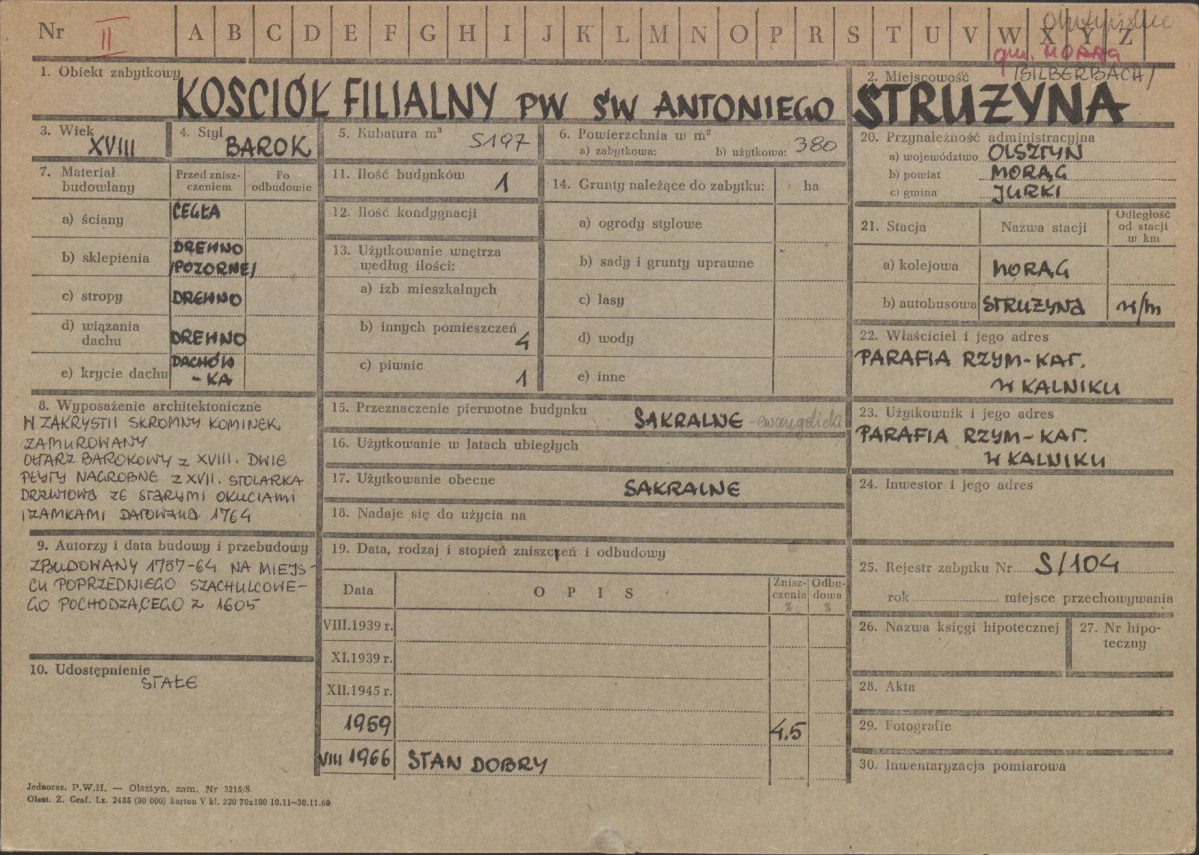 Nr II A B C D E F G H I J K L M N O P R S T U V W X Y Z
gm. MORĄG
1. Obiekt zabytkowy
KOSCIÓŁ FILIALNY PW ŚW ANTONIEGO
2. Miejscowość /SILBERBACH/
STRUŻYNA
3. Wiek
XVIII
4. Styl
BAROK
5. Kubatura m³ 5197
6. Powierzchnia w m²
a) zabytkowa: b) użytkowa: 380
7. Materiał budowlany
Przed znisz-
czeniem
Po
odbudowie
a) ściany CEGŁA
b) sklepienia DREWNO
/POZORNE/
c) stropy DREWNO
d) wiązania
dachu DREWNO
e) krycie dachu DACHÓW
-KA
8. Wyposażenie architektoniczne
W ZAKRYSTII SKROMNY KOMINEK
ZAMUROWANY
OŁTARZ BAROKOWY Z XVIII. DWIE
PŁYTY NAGROBNE Z XVII. STOLARKA
DRZWIOWA ZE STARYMI OKUCIAMI
I ZAMKAMI DATOWANA 1764
9. Autorzy i data budowy i przebudowy
ZBUDOWANY 1757-64 NA MIEJS-
CU POPRZEDNIEGO SZACHULCOWE-
GO POCHODZĄCEGO Z 1605
10. Udostępnienie
STAŁE
11. Ilość budynków 1
12. Ilość kondygnacji
13. Użytkowanie wnętrza
według ilości:
a) izb mieszkalnych
b) innych pomieszczeń 4
c) piwnic 1
14. Grunty należące do zabytku: ha
a) ogrody stylowe
b) sady i grunty uprawne
c) lasy
d) wody
e) inne
15. Przeznaczenie pierwotne budynku SAKRALNE - ewangelicki
16. Użytkowanie w latach ubiegłych
17. Użytkowanie obecne SAKRALNE
18. Nadaje się do użycia na
19. Data, rodzaj i stopień zniszczeń i odbudowy
Data
O P I S
Znisz-
czenia
%
Odbu-
dowa
%
VIII.1939 r.
XI.1939 r.
XII.1945 r.
1959 4.5
VIII 1966 STAN DOBRY
20. Przynależność administracyjna
a) województwo OLSZTYN
b) powiat MORĄG
c) gmina JURKI
21. Stacja
Nazwa stacji
Odległość
od stacji
w km
a) kolejowa MORĄG
b) autobusowa STRUŻYNA w/m
22. Właściciel i jego adres
PARAFIA RZYM-KAT.
W KALNIKU
23. Użytkownik i jego adres
PARAFIA RZYM-KAT.
W KALNIKU
24. Inwestor i jego adres
25. Rejestr zabytku Nr S/104
rok miejsce przechowywania
26. Nazwa księgi hipotecznej
27. Nr hipo-
teczny
28. Akta
29. Fotografie
30. Inwentaryzacja pomiarowa
Jednoraz. P.W.H. — Olsztyn, zam. Nr 3215/S
Olszt. Z. Graf. Lz. 2485 (30 000) karton V kl. 220 70x100 10.11—30.11.60